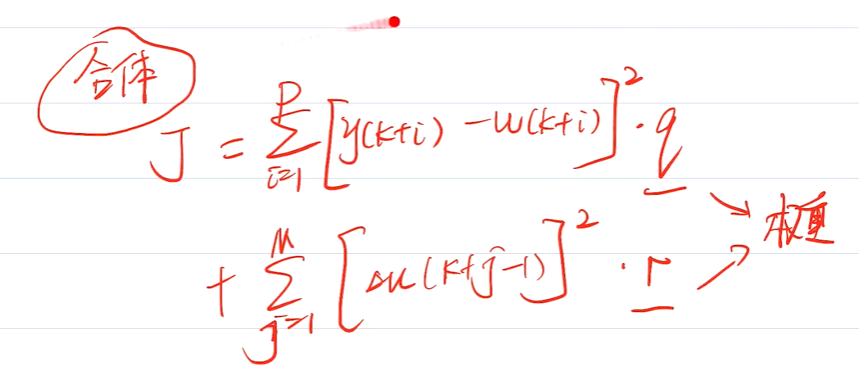 合体
J = \sum_{i=1}^{P} [y(k+i) - w(k+i)]^2 · q
+ \sum_{j=1}^{M} [Δu(k+j-1)]^2 · r
权重